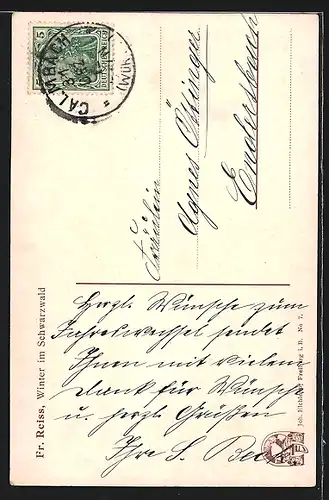 CALMBACH
(WÜR
5
DEUTSCHES REICH
Fräulein
Agnes Öttinger
Endersbach
Fr. Reiss, Winter im Schwarzwald
Herzl. Wünsche zum
Jahreswechsel sendet
Ihnen mit vielem
Dank für Wünsche
u. herzl. Grüßen
Ihre S.
Joh. Elchlepp, Freiburg i. B. No 7.